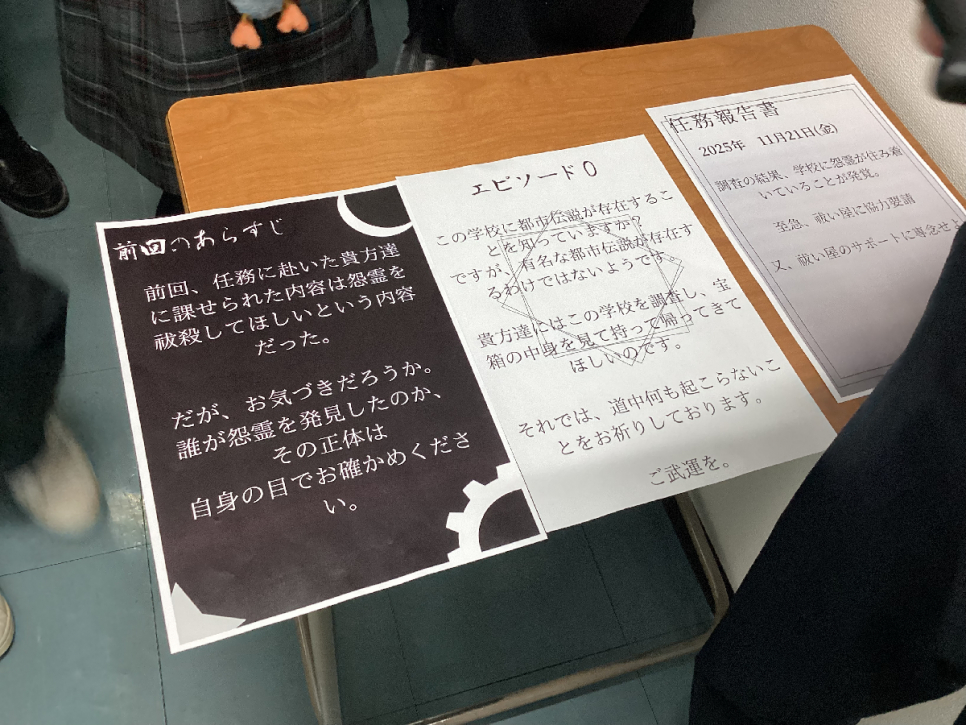 前回のあらすじ
前回、任務に赴いた貴方達
に課せられた内容は怨霊を
祓殺してほしいという内容
だった。
だが、お気づきだろうか。
誰が怨霊を発見したのか、
その正体は
自身の目でお確かめくださ
い。
エピソード0
この学校に都市伝説が存在するこ
とを知っていますか?
ですが、有名な都市伝説が存在す
るわけではないようです。
貴方達にはこの学校を調査し、宝
箱の中身を見て持って帰ってきて
ほしいのです。
それでは、道中何も起こらないこ
とをお祈りしております。
ご武運を。
任務報告書
2025年 11月21日(金)
調査の結果、学校に怨霊が住み着
いていることが発覚。
至急、祓い屋に協力要請
又、祓い屋のサポートに専念せよ